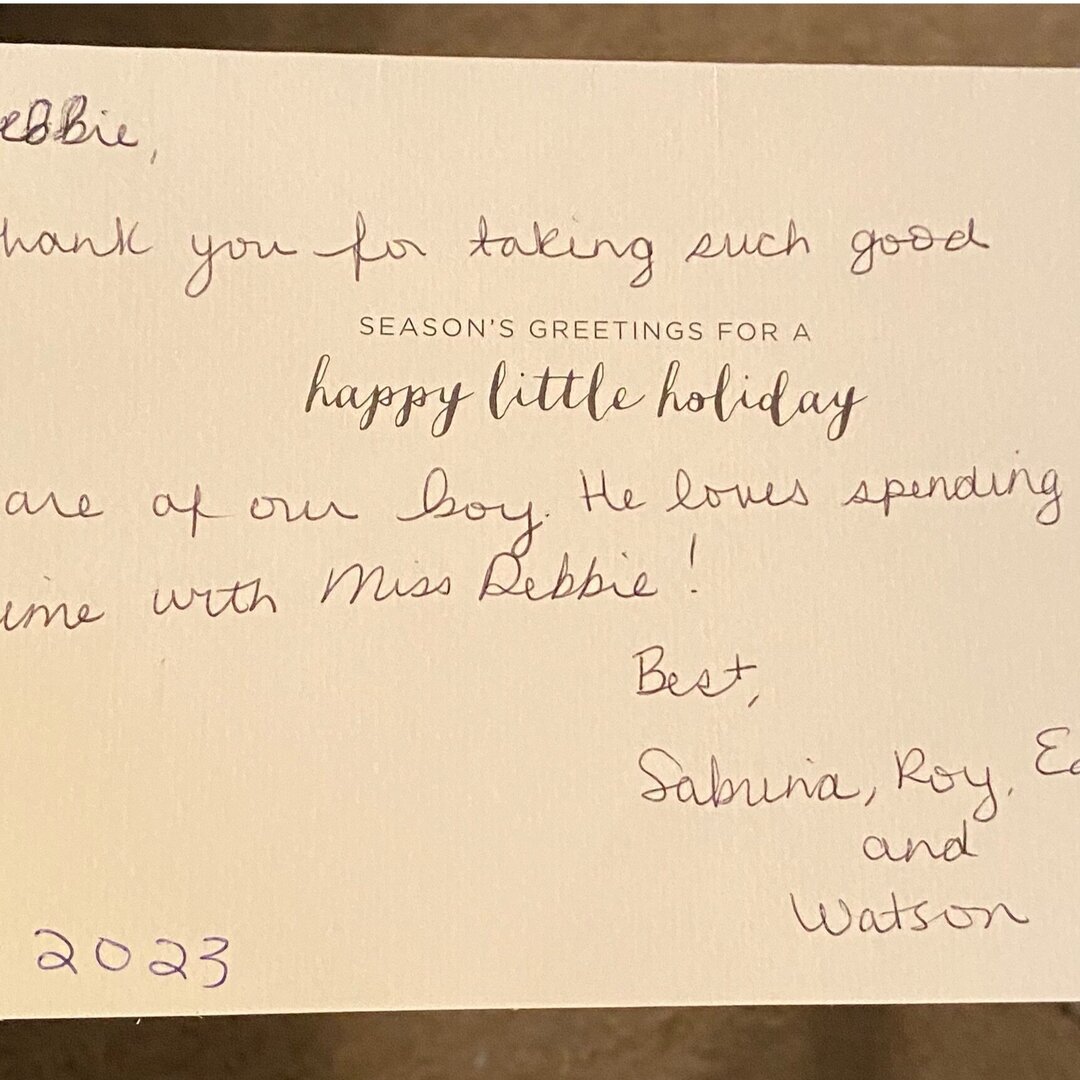 ebbie,
hank you for taking such good
SEASON'S GREETINGS FOR A
happy little holiday
are of our boy. He loves spending
ime with Miss Debbie!
Best,
Sabrina, Roy, Ed
and
Watson
2023